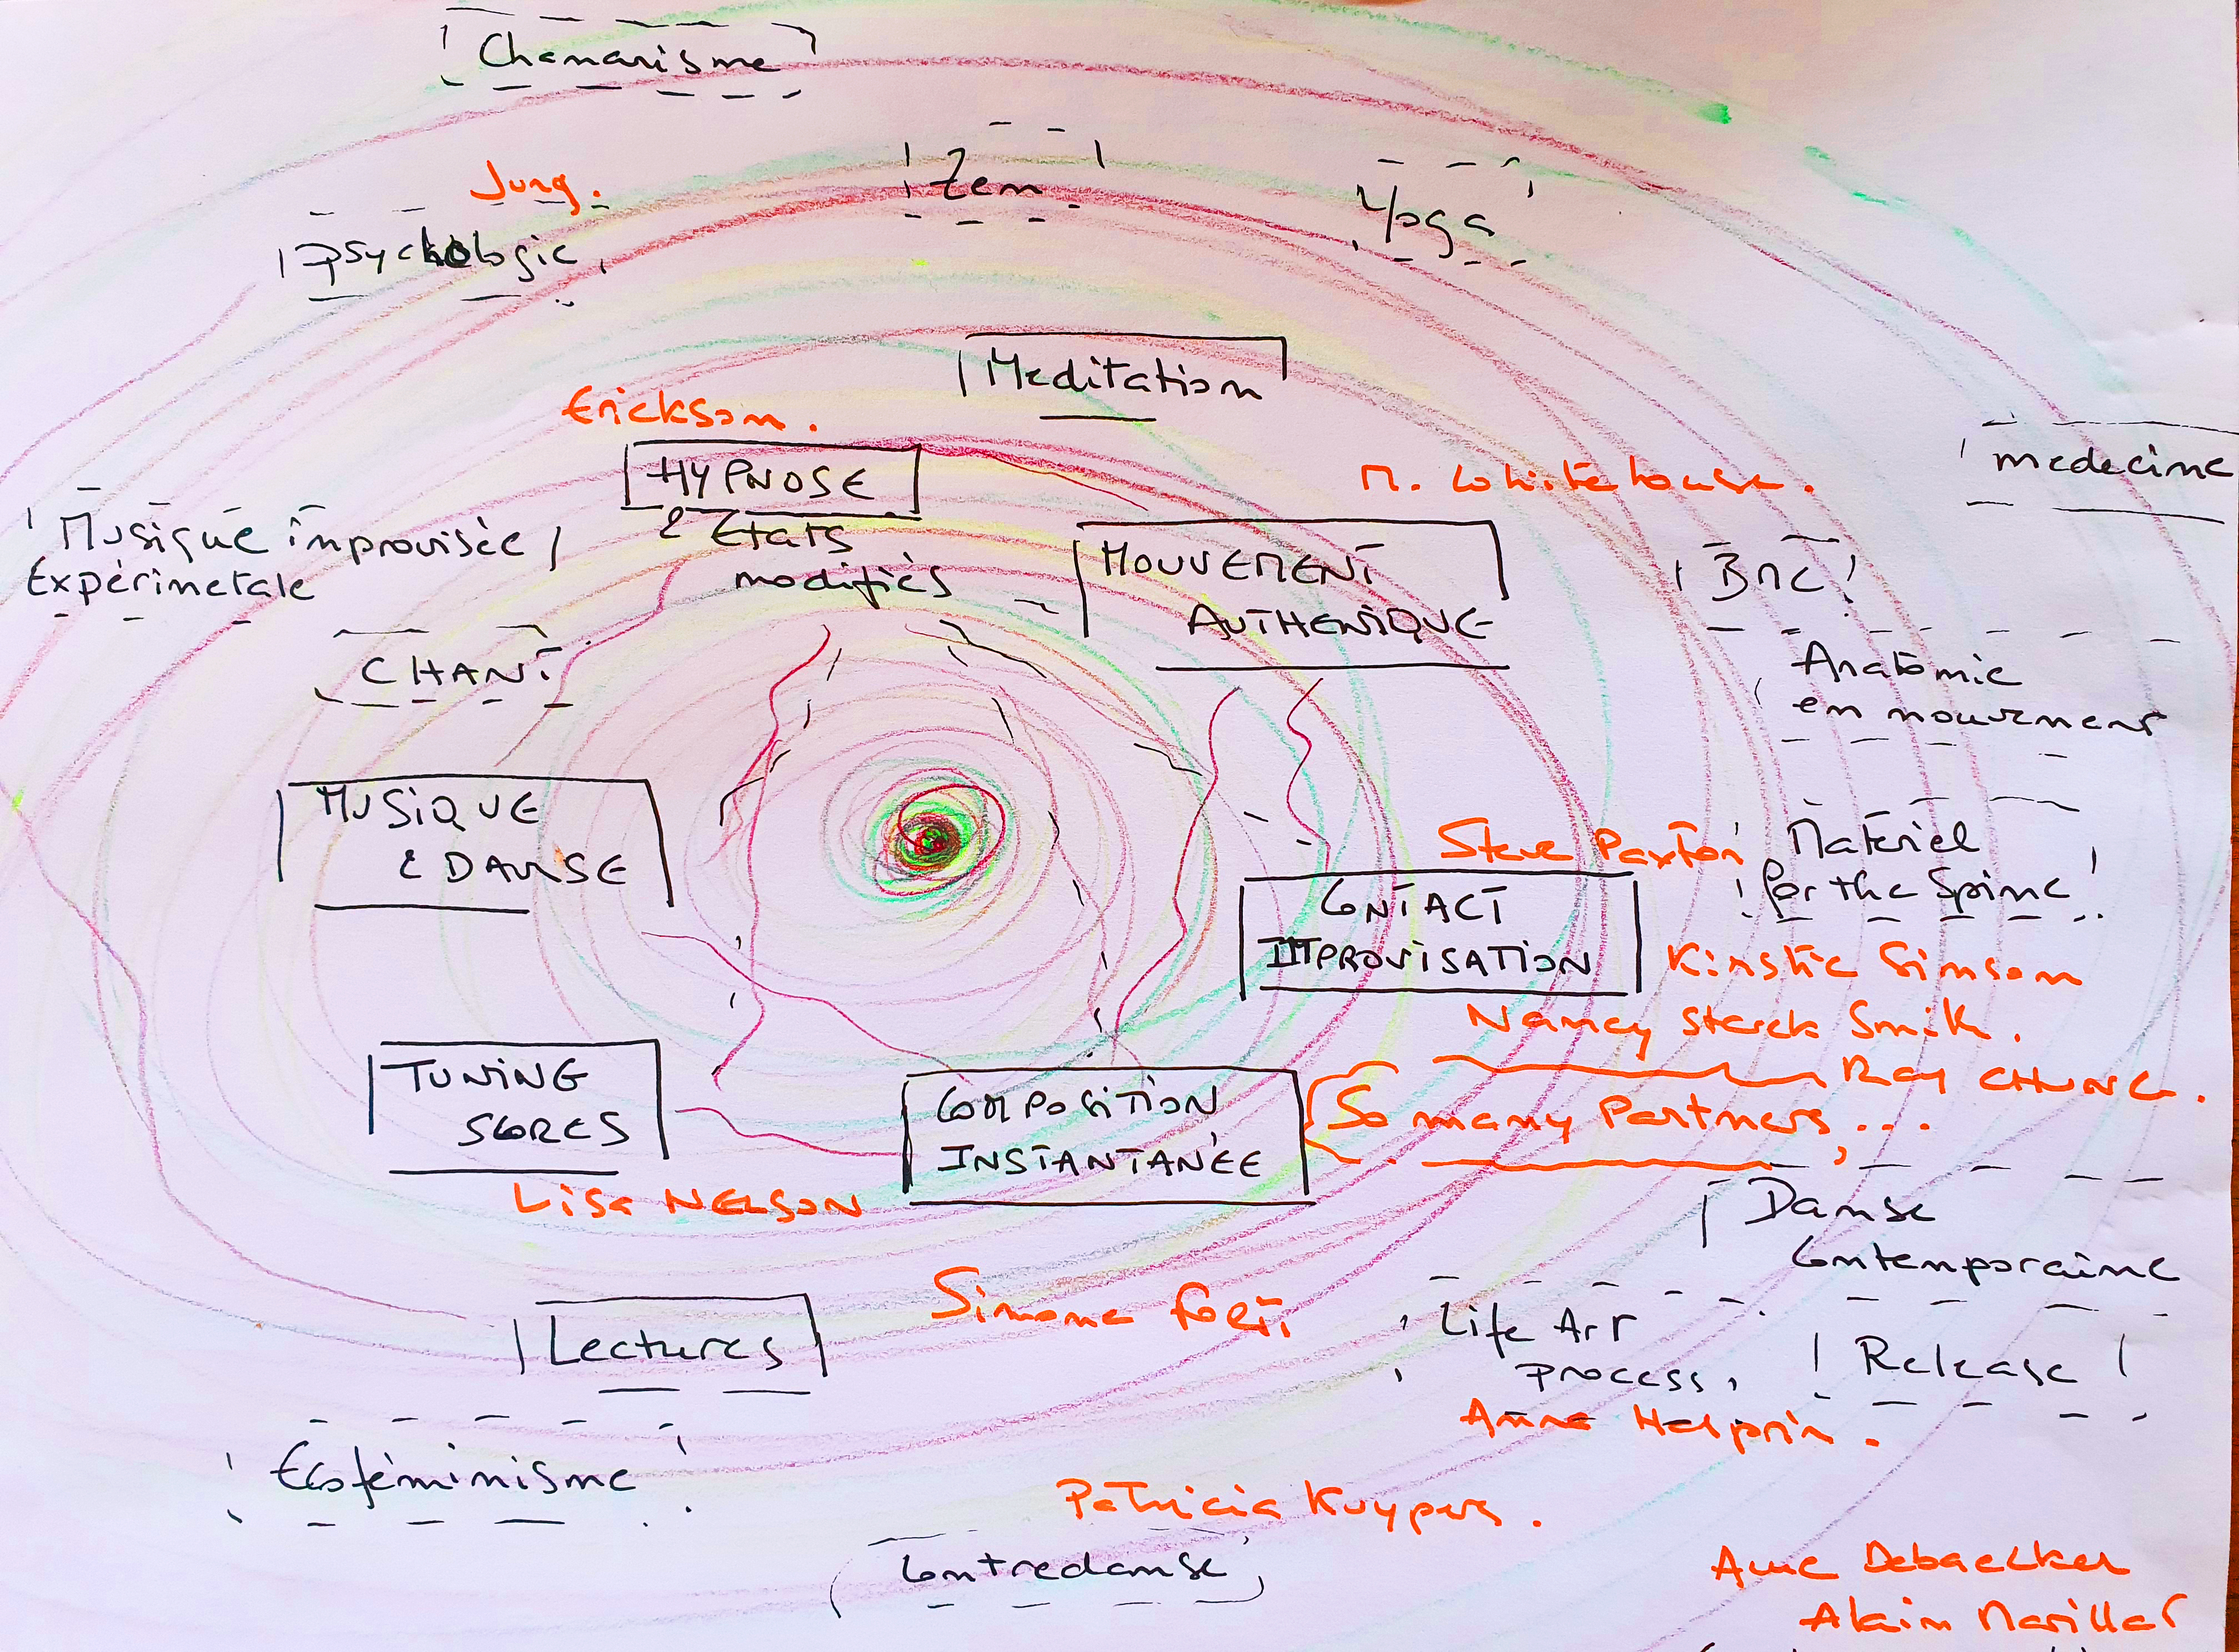 Chamanisme
Jung.
Zen
Yoga
psychologie
Meditation
Erickson.
HYPNOSE
& Etats
modifiés
M. Whitehouse.
medecine
Musique improvisée
Expérimetale
MOUVEMENT
AUTHENIQUE
BMC
CHANT
Anatomie
en mouvement
MUSIQUE
& DANSE
Steve Paxton
Materiel
for the Spine
CONTACT
IMPROVISATION
Kirstie Simson
Nancy Starck Smith.
Ray CHUNG.
TUNING
SCORES
COMPOSITION
INSTANTANÉE
So many Partners, ...
Lisa NELSON
Danse
Contemporaine
Simone Forti
Life Art
process,
Release
Lectures
Anna Halprin.
Ecoféminisme
Patricia Kuypers.
Contredanse
Debaecker
Alain